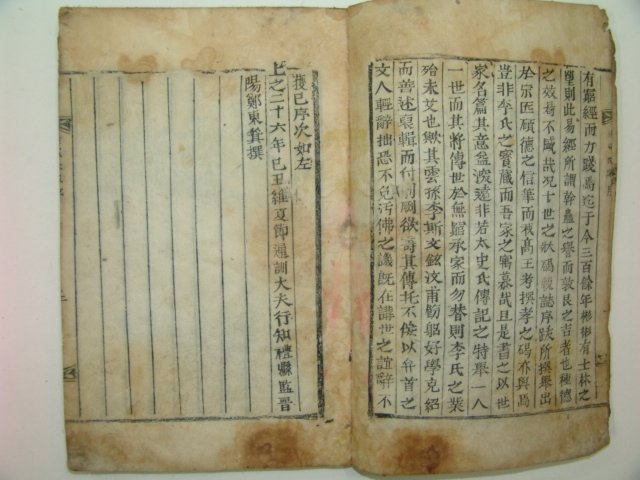 有壓經而方踐焉迄于今三百餘年彬彬有士林之
望則此易經所謂幹蠱之譽而敦艮之吉者也種德
之效曷不盛哉況十世之狀碣載誌序跋所撰舉出
於宗匠碩德之信筆而被髙王考撰孝之碣亦與焉
豈非李氏之寶蔵而吾家之寤慕哉且是書之以世
家名篇其意益浚遠非若太史氏傳記之特舉一人
一世而其將傳世於無窮承家而勿替則李氏之業
殆未艾也歟其雲孫李斯文鉉汶甫勤躬好學克紹
而善述裒輯而付剞劂欲壽其傳托不侫以弁首之
文人輕辭拙恐不免汚佛之譏旣在講世之誼辭不
獲已序次如左
上之二十六年己丑維夏節通訓大夫行知禮縣監晋
陽鄭東箕撰